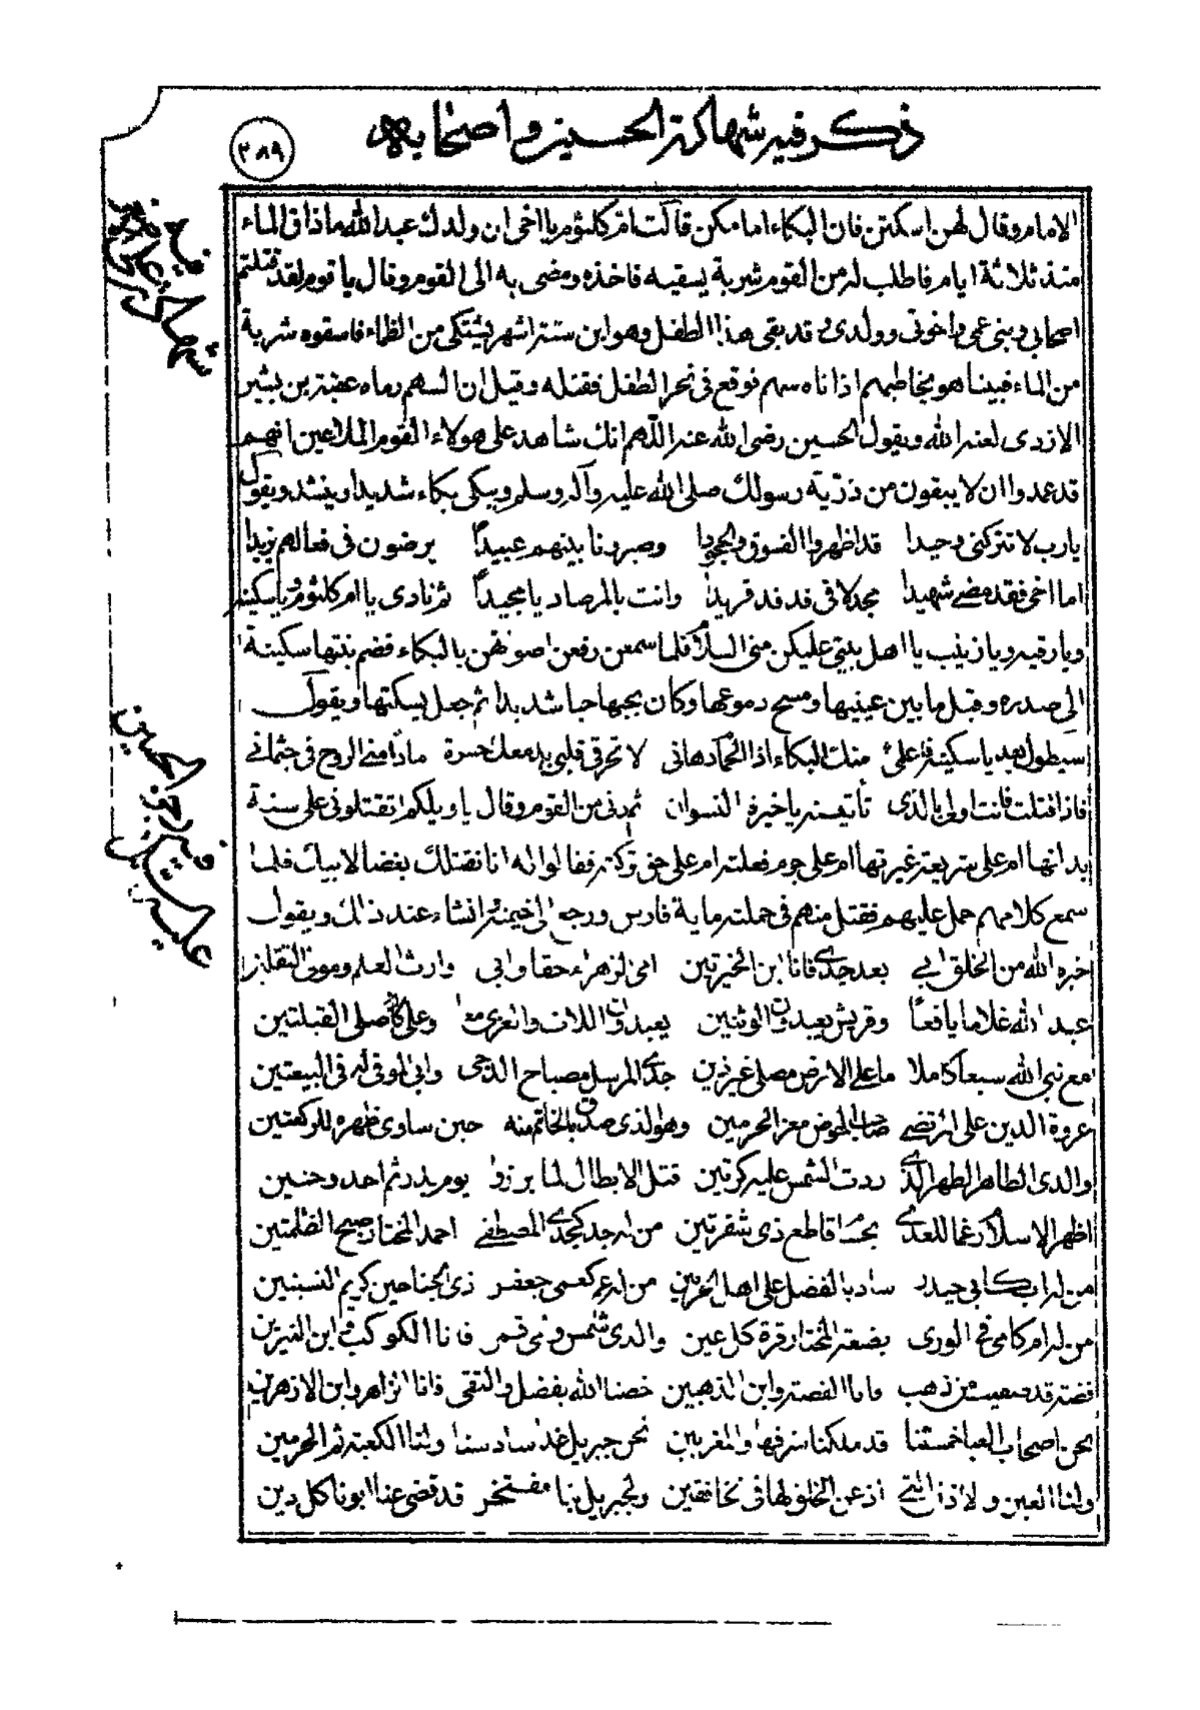 ذكر فيه شهادة الحسين واصحابه
٢٨٩
الامام وقال لهن اسكتن فان البكاء امامكن قالت ام كلثوم يا اخى ان ولدك عبد الله ماذاق الماء
منذ ثلاثة ايام فاطلب له من القوم شربة يسقيه فاخذه ومضى به الى القوم وقال يا قوم لقد قتلتم
اصحابى وبنى عمى واخوتى وولدى وقد بقى هذا الطفل وهو ابن ستة اشهر يشتكى من الظماء فاسقوه شربة
من الماء فبينا هو يخاطبهم اذ اتاه سهم فوقع فى نحر الطفل فقتله وقيل ان السهم رماه عقبة بن بشير
الازدى لعنه الله ويقول الحسين رضى الله عنه اللهم انك شاهد على هولاء القوم الملاعين انهم
قد عمدوا ان لا يبقون من ذرية رسولك صلى الله عليه وآله وسلم ويبكى بكاء شديدا وينشد ويقول
يا رب لا تتركنى وحيدا قد اظهروا الفسوق والجحودا وصيرونا بينهم عبيداً يرضون فى فعالهم يزيدا
اما اخى فقد مضى شهيدا مجدلا فى فدفد فريدا وانت بالمرصاد يا مجيداً ثم نادى يا ام كلثوم ويا سكينه
ويا رقيه ويا زينب يا اهل بيتى عليكن منى السلام فلما سمعن رفعن اصوتهن بالبكاء فضم بنتها سكينة
الى صدره وقبل ما بين عينيها ومسح دموعها وكان يحبها حبا شديدا ثم جعل يسكتها ويقول
سيطول بعدى يا سكينة فاعلمى منك البكاء اذا الحمام دهانى لا تحرقى قلبى بدمعك حسرة مادام منى الروح فى جثمانى
فاذا قتلت فانت اولى بالذى تأتينه يا خيرة النسوان ثم دنى من القوم وقال يا ويلكم اتقتلونى على سنة
بدلتها ام على شريعة غيرتها ام على جرم فعلته ام على حق تركته فقالوا له انا نقتلك بغضا لابيك فلما
سمع كلامهم حمل عليهم فقتل منهم فى حملته ماية فارس ورجع الى خيمته وانشاء عند ذلك ويقول
خيره الله من الخلق ابى بعد جدى فانا ابن الخيرتين امى الزهراء حقا وابى وارث العلم ومولى الثقلين
عبد الله غلاما يافعاً وقريش يعبدون الوثنين يعبدون اللات والعزى معا وعلى كان صلى القبلتين
مع نبى الله سبعا كاملا ما على الارض مصلى غير ذين جدى المرسل مصباح الدجى وابى الموفى له فى البيعتين
عروة الدين على المرتضى صاحب الحوض معز الحرمين وهو الذى صدق بالخاتم منه حين ساوى ظهره للركعتين
والدى الطاهر الطهر الذى ردت الشمس عليه كرتين قتل الابطال لما برزوا يوم بدر ثم احد وحنين
اظهر الاسلام رغما للعدى بحسام قاطع ذى شفرتين من له جد كجدى المصطفى احمد المختار صبح الظلمتين
من له اب كابى حيدر ساد بالفضل على اهل الحرمين من له عم كعمى جعفر ذى الجناحين كريم النسبتين
من له ام كامى فى الورى بضعة المختار قرة كل عين والدى شمس وامى قمر فانا الكوكب وابن النيرين
فضة قد صفيت من ذهب وانا الفضة وابن الذهبين خصنا الله بفضل والتقى فانا الزاهر وابن الازهرين
نحن اصحاب العبا خمستنا قد ملكنا شرقها والمغربين نحن جبريل غدا سادسنا ولنا الكعبة ثم الحرمين
ولنا العين ولاذن التى اذعن الخلق لها فى الخافقين ولجبريل بنا مفتخر قد قضى عنا ابونا كل دين